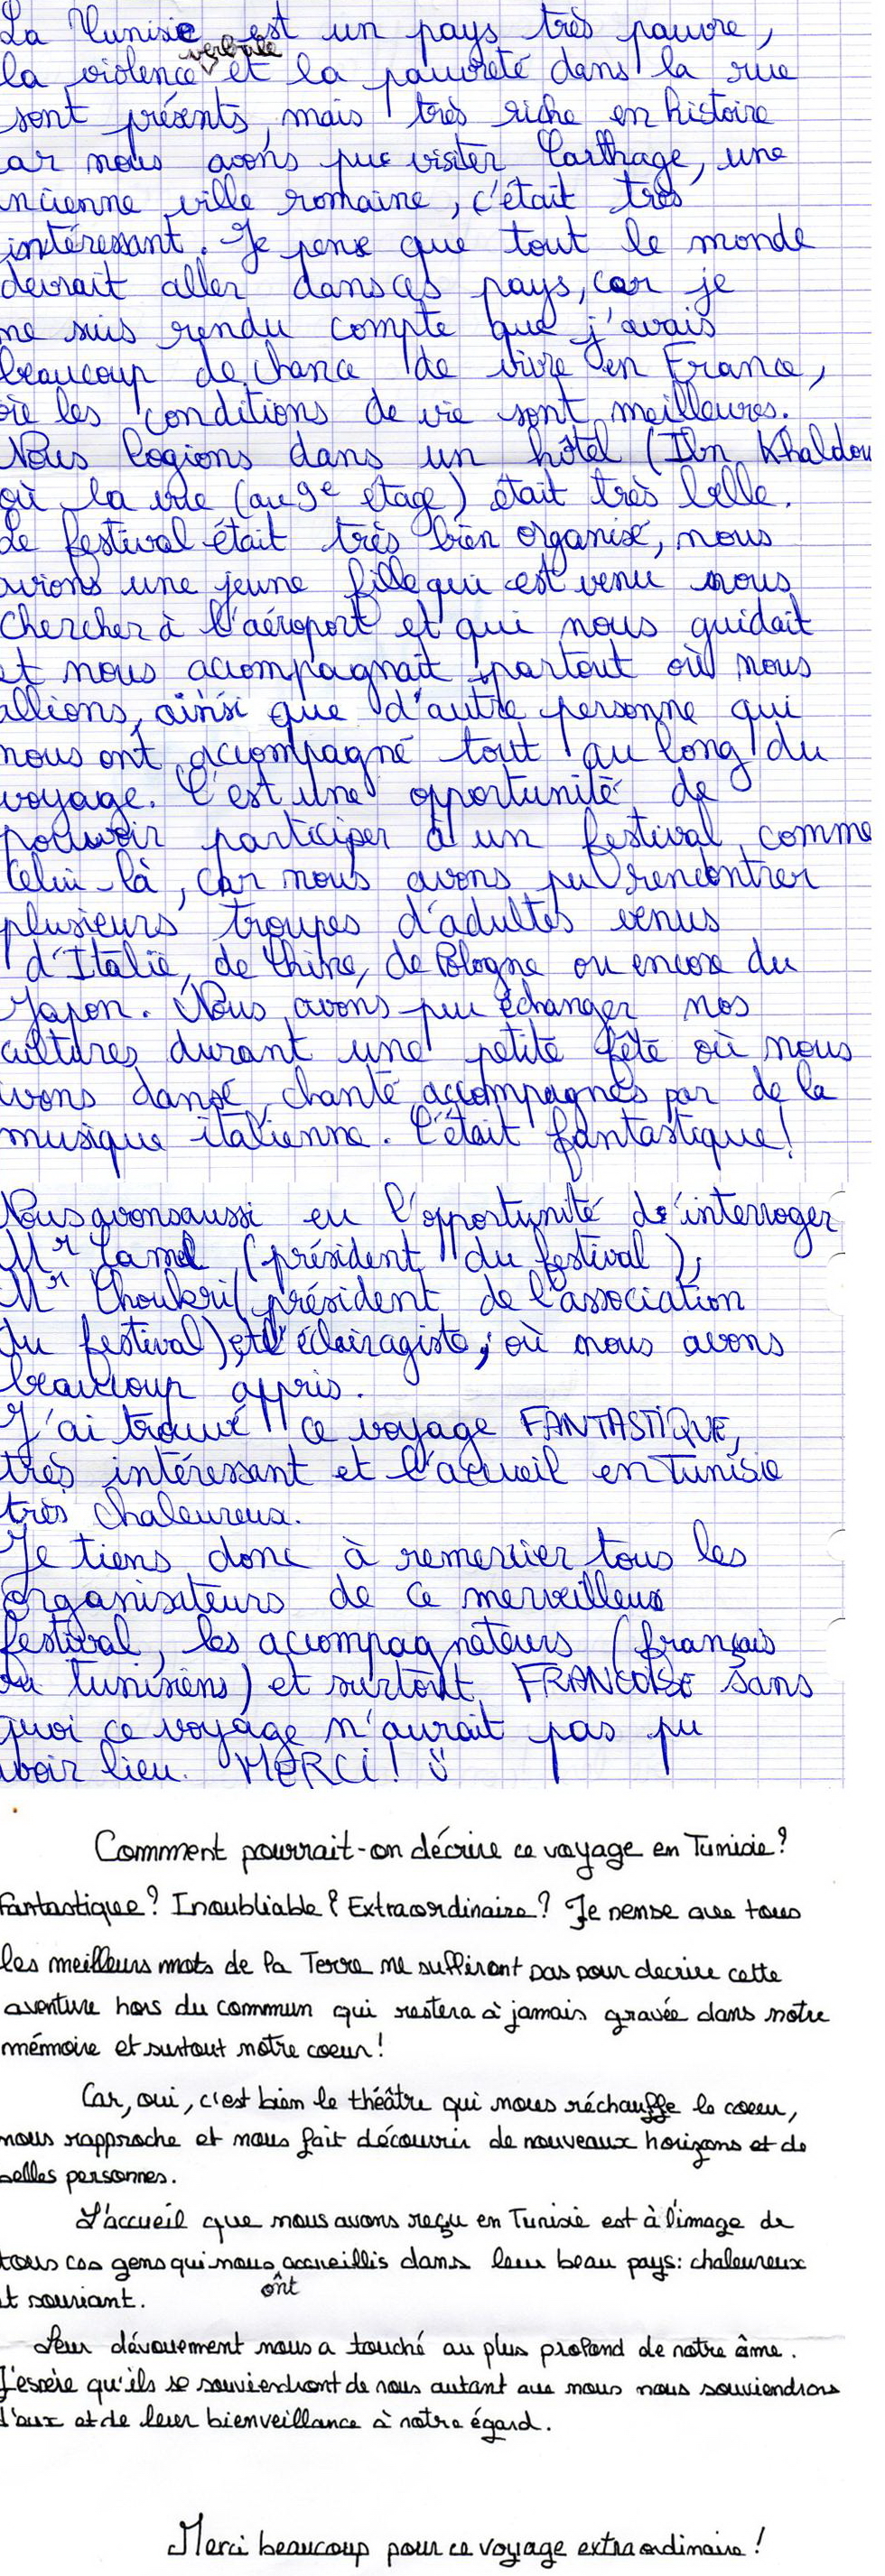 La Tunisie est un pays très pauvre,
verbale
la violence et la pauvreté dans la rue
sont présents, mais très riche en histoire
ar nous avons pue visiter Carthage, une
ncienne ville romaine, c'était très
intéressant. Je pense que tout le monde
devrait aller dans ces pays, car je
me suis rendu compte que j'avais
beaucoup de chance de vivre en France,
où les conditions de vie sont meilleures.
Nous logions dans un hôtel (Ibn Khaldou
où la vue (au 9e étage) était très belle.
Le festival était très bien organisé, nous
avions une jeune fille qui est venu nous
chercher à l'aéroport et qui nous guidait
et nous accompagnait partout où nous
allions, ainsi que d'autre personne qui
nous ont accompagné tout au long du
voyage. C'est une opportunité de
pouvoir participer à un festival comme
celui-là, car nous avons pu rencontrer
plusieurs troupes d'adultes venus
d'Italie, de Chine, de Pologne ou encore du
Japon. Nous avons pu échanger nos
cultures durant une petite fête où nous
avons dansé, chanté accompagnés par de la
musique italienne. C'était fantastique!
Nous avons aussi eu l'opportunité d'interroger
Mr Jamel (président du festival),
Mr Choukri (président de l'association
du festival), et l'éclairagiste, où nous avons
beaucoup appris.
J'ai trouvé ce voyage FANTASTIQUE,
très intéressant et l'accueil en Tunisie
très chaleureux.
Je tiens donc à remercier tous les
organisateurs de ce merveilleux
festival, les accompagnateurs (français
ou tunisiens) et surtout FRANCOISE sans
quoi ce voyage n'aurait pas pu
avoir lieu. MERCI! ☺
Comment pourrait-on décrire ce voyage en Tunisie?
Fantastique? Inoubliable? Extraordinaire? Je pense que tous
les meilleurs mots de la Terre ne suffiront pas pour decrire cette
aventure hors du commun qui restera à jamais gravée dans notre
mémoire et surtout notre coeur!
Car, oui, c'est bien le théâtre qui nous réchauffe le coeur,
nous rapproche et nous fait découvrir de nouveaux horizons et de
belles personnes.
L'accueil que nous avons reçu en Tunisie est à l'image de
tous ces gens qui nous accueillis dans leur beau pays: chaleureux
ont
et souriant.
Leur dévouement nous a touché au plus profond de notre âme.
J'espère qu'ils se souviendront de nous autant que nous nous souviendrons
d'eux et de leur bienveillance à notre égard.
Merci beaucoup pour ce voyage extraordinaire!